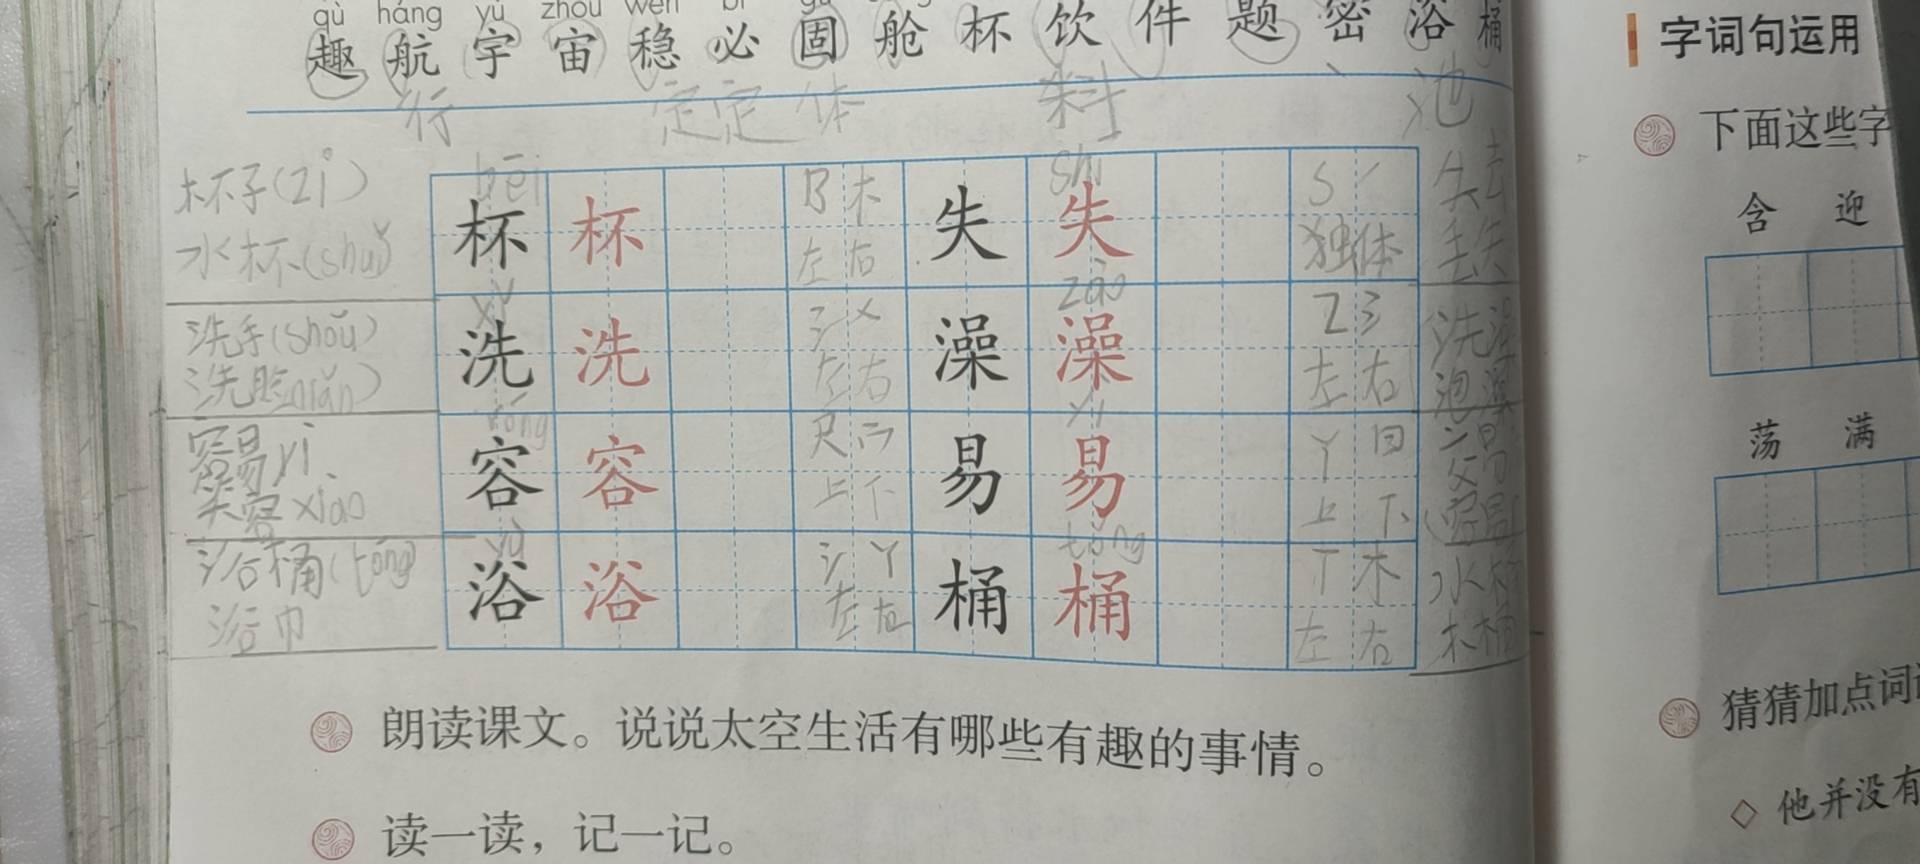 qù háng yǔ zhòu wěn bì gù
趣 航 宇 宙 稳 必 固 舱 杯 饮 件 题 密 浴 桶
行 定 定 体 料 池
杯子(zi) bēi 杯 杯 B 木 左 右 失 shī 失 S 丿 独体 失去
水杯(shuǐ) 丢失
洗手(shǒu) xǐ 洗 洗 氵 X 左 右 澡 zǎo 澡 Z 氵 左 右 洗澡
洗脸 泡澡
容易yì róng 容 容 R 宀 上 下 易 yì 易 Y 日 上 下
笑容xiào 容易
浴桶(tǒng) yù 浴 浴 氵 Y 左 右 桶 tǒng 桶 T 木 左 右 水桶
浴巾 木桶
朗读课文。说说太空生活有哪些有趣的事情。
读一读，记一记。
字词句运用
下面这些字
含 迎
荡 满
猜猜加点词
◇ 他并没有